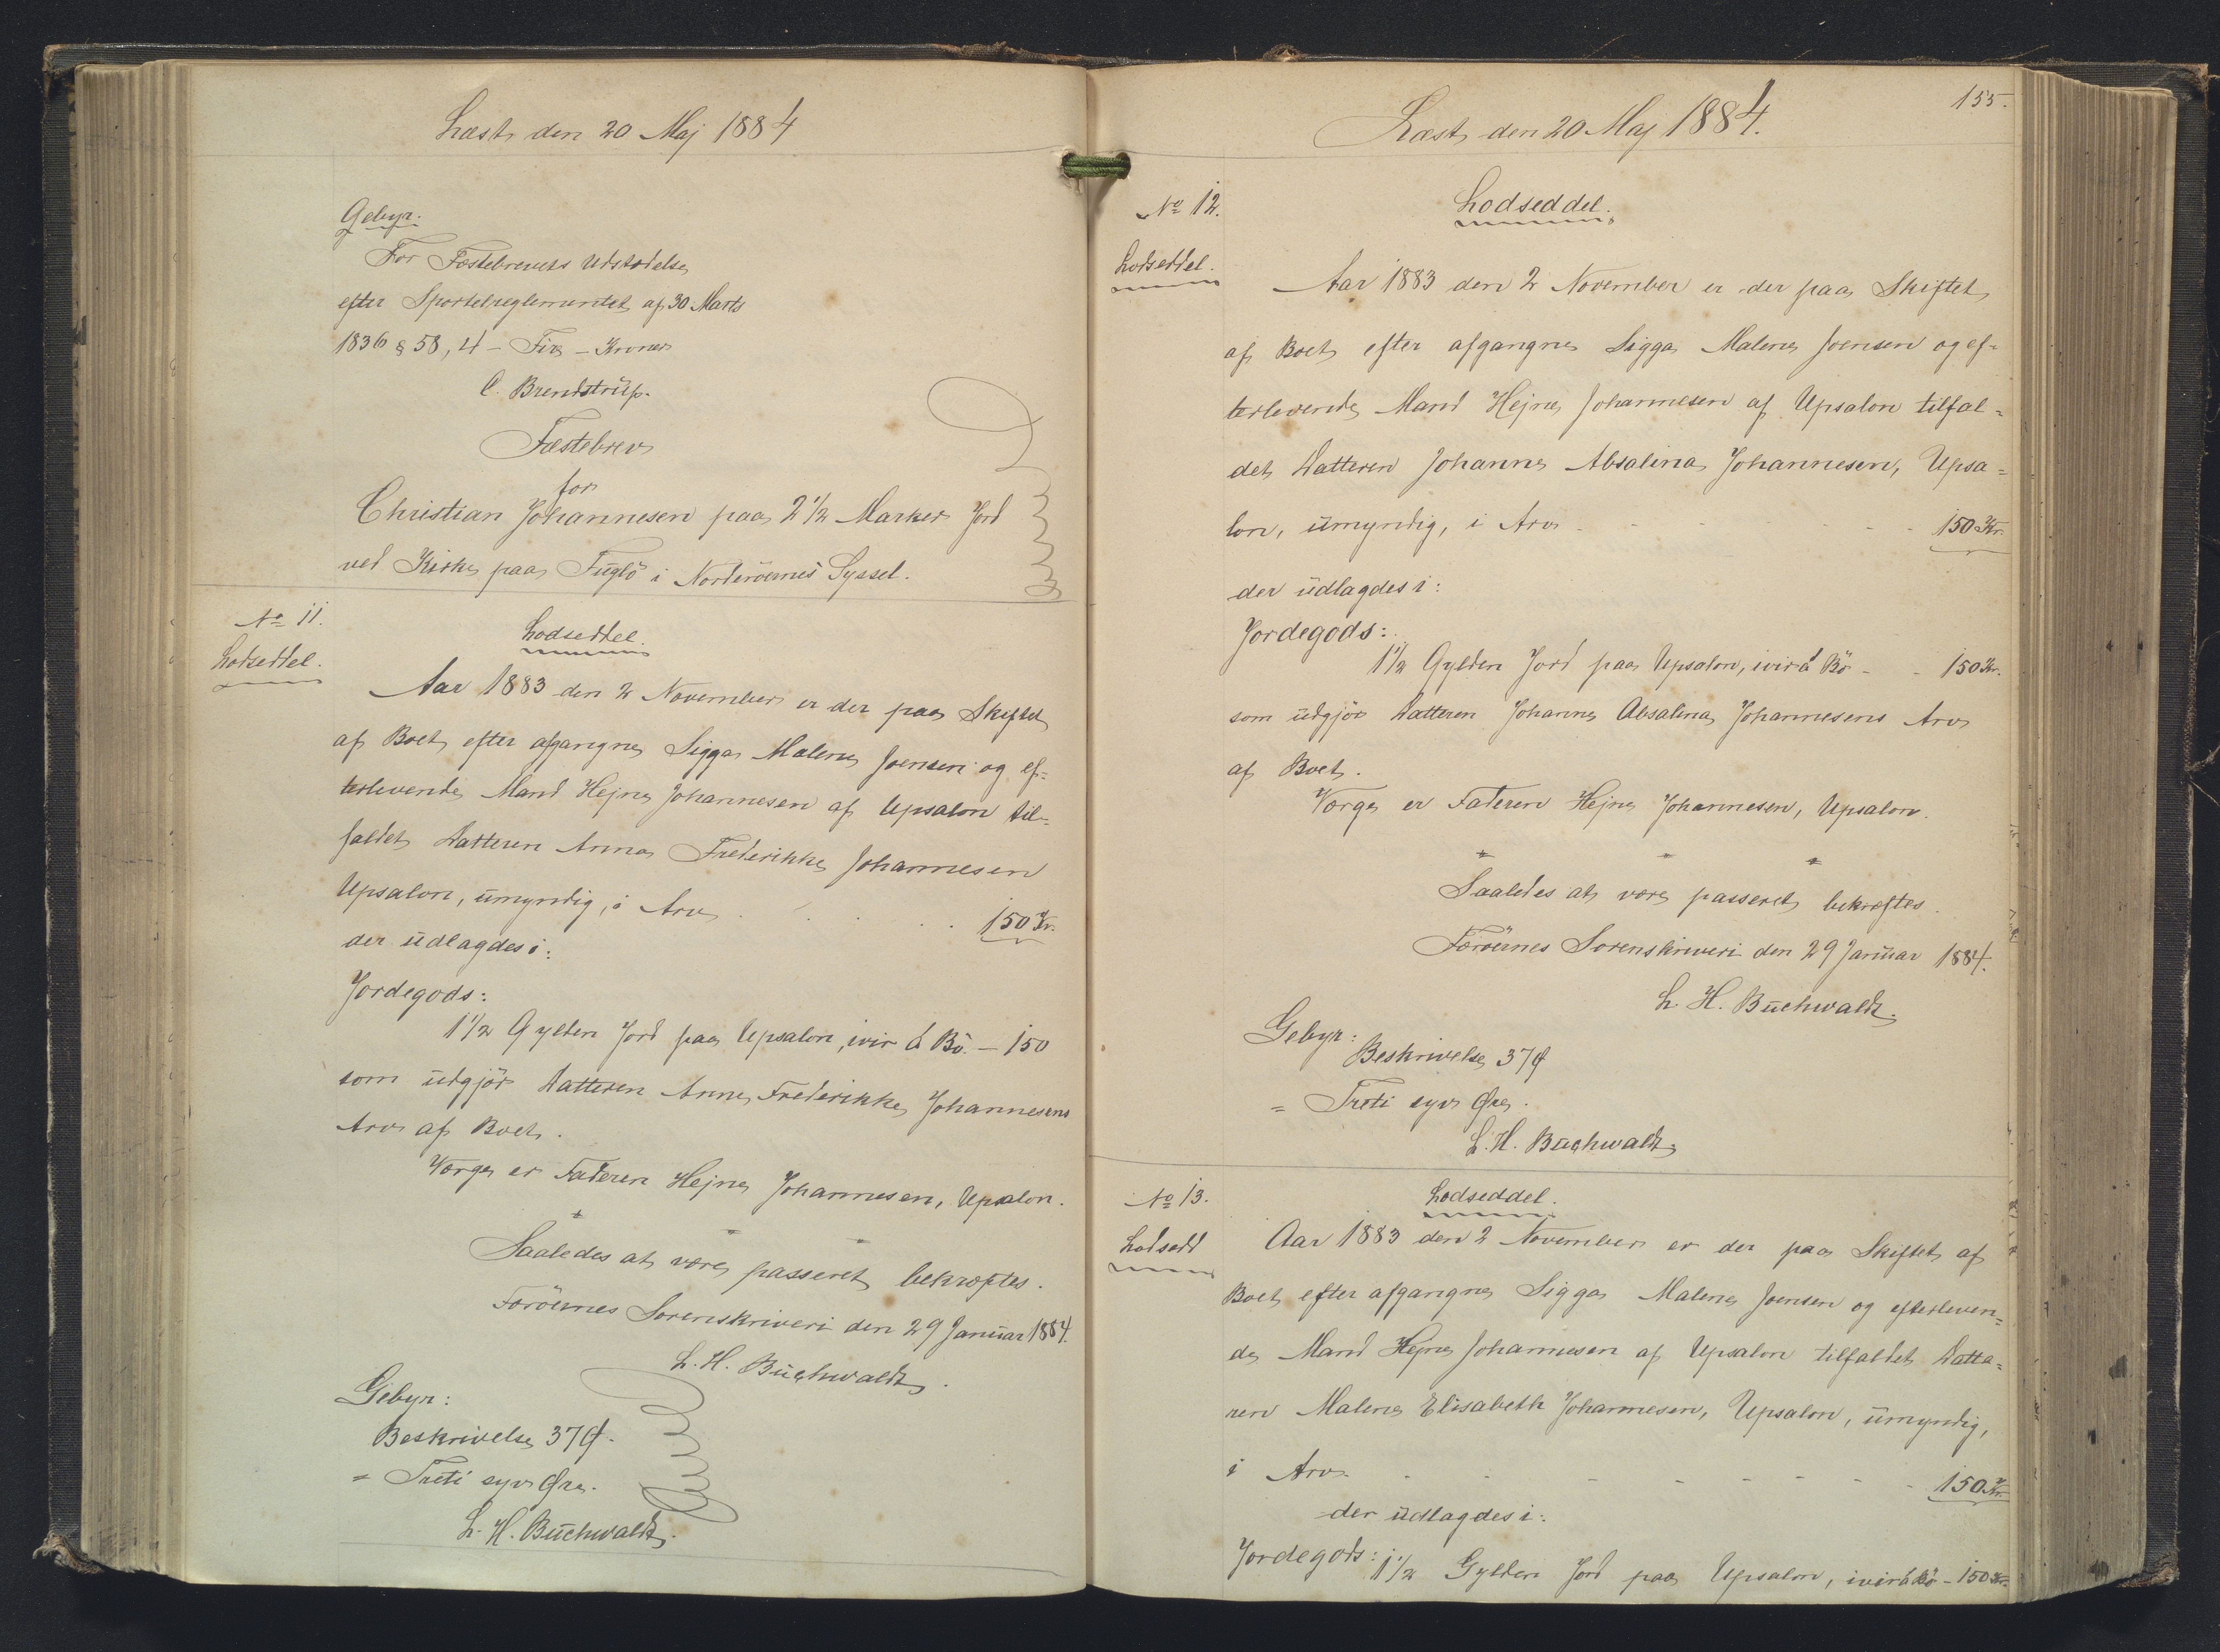 Læst den 20 Maj 1884
Gebyr.
For Fæstebrevets Udstædelse
efter Sportelreglementet af 30 Marts
1836 § 58, 4 - Fire - Kroner
C. Brendstrüp.
Fæstebrev
for
Christian Johannesen paa 2 1/2 Marker Jord
ved Kirke paa Fuglö i Norderöernes Syssel.
No 11.
Lodseddel.
Lodseddel.
Aar 1883 den 2 November er der paa Skiftet
af Boet efter afgangne Sigga Malene Joensen og ef-
terlevende Mand Hejne Johannesen af Upsalon til-
faldet Datteren Anna Frederikke Johannesen
Upsalon, ümyndig, i Arv . . . . 150 Kr.
der üdlagdes i:
Jordegods:
1 1/2 Gylden Jord paa Upsalon, ivir á Bö. - 150
som üdgjör Datteren Anne Frederikke Johannesens
Arv af Boet.
Værge er Faderen Hejne Johannesen, Upsalon.
Saaledes at være passeret bekræftes.
Færöernes Sorenskriveri den 29 Janüar 1884.
L. H. Büchwaldt.
Gebyr:
Beskrivelse 37 Ø.
= Treti syv Øre.
L. H. Büchwaldt.
155.
Læst den 20 Maj 1884.
No 12.
Lodseddel.
Lodseddel.
Aar 1883 den 2 November er der paa Skiftet
af Boet efter afgangne Sigga Malene Joensen og ef-
terlevende Mand Hejne Johannesen af Upsalon tilfal-
det Datteren Johanne Absalina Johannesen, Upsa-
lon, ümyndig, i Arv - - - - 150 Kr.
der üdlagdes i:
Jordegods:
1 1/2 Gylden Jord paa Upsalon, ivir á Bö - - 150 Kr.
som üdgjör Datteren Johanne Absalina Johannesens Arv
af Boet.
Værge er Faderen Hejne Johannesen, Upsalon.
Saaledes at være passeret bekræftes.
Færöernes Sorenskriveri den 29 Janüar 1884.
L. H. Büchwaldt.
Gebyr:
Beskrivelse 37 Ø
= Treti syv Øre.
L. H. Büchwaldt
No 13.
Lodsedd
Lodseddel.
Aar 1883 den 2 November er der paa Skiftet af
Boet efter afgangne Sigga Malene Joensen og efterleven-
de Mand Hejne Johannesen af Upsalon tilfaldet Datte-
ren Malene Elisabeth Johannesen, Upsalon, ümyndig,
i Arv. - - - - - - 150 Kr.
der üdlagdes i:
Jordegods: 1 1/2 Gylden Jord paa Upsalon, ivir á Bö - 150 Kr.